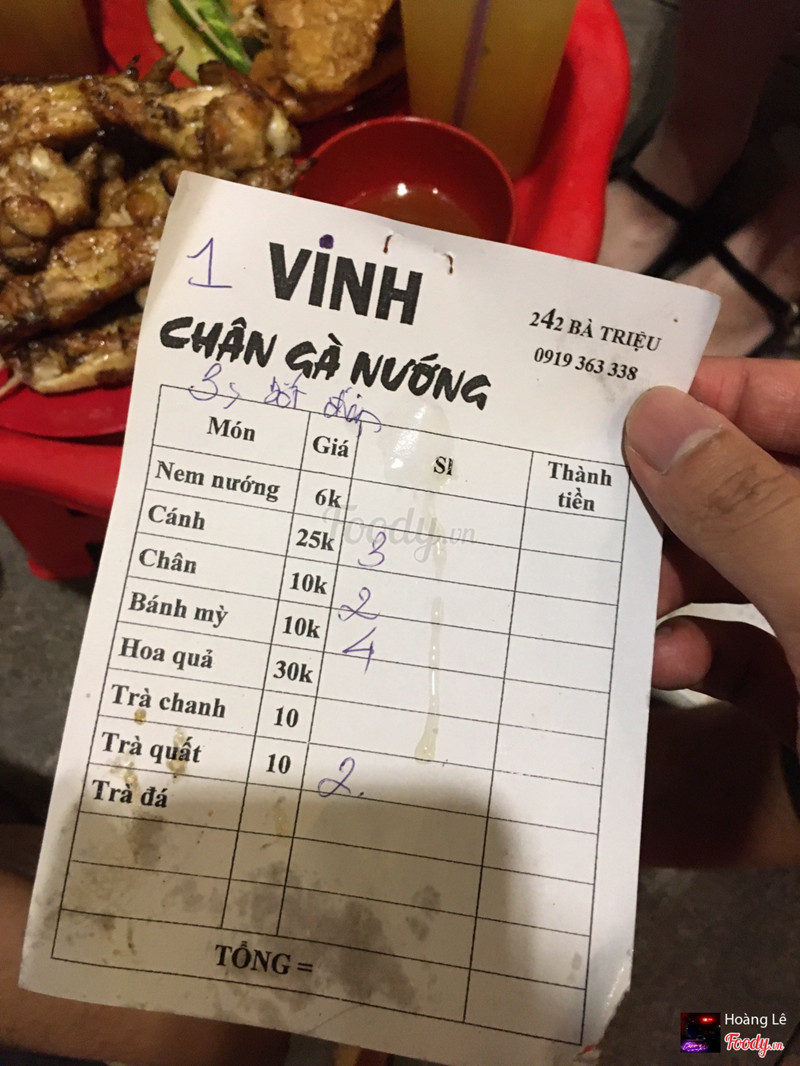 1 VINH
CHÂN GÀ NƯỚNG
242 BÀ TRIỆU
0919 363 338
3
Món Giá Sl Thành tiền
Nem nướng 6k
Cánh 25k 3
Chân 10k 2
Bánh mỳ 10k 4
Hoa quả 30k
Trà chanh 10
Trà quất 10 2
Trà đá
TỔNG =
Foody.vn
Hoàng Lê
Foody.vn